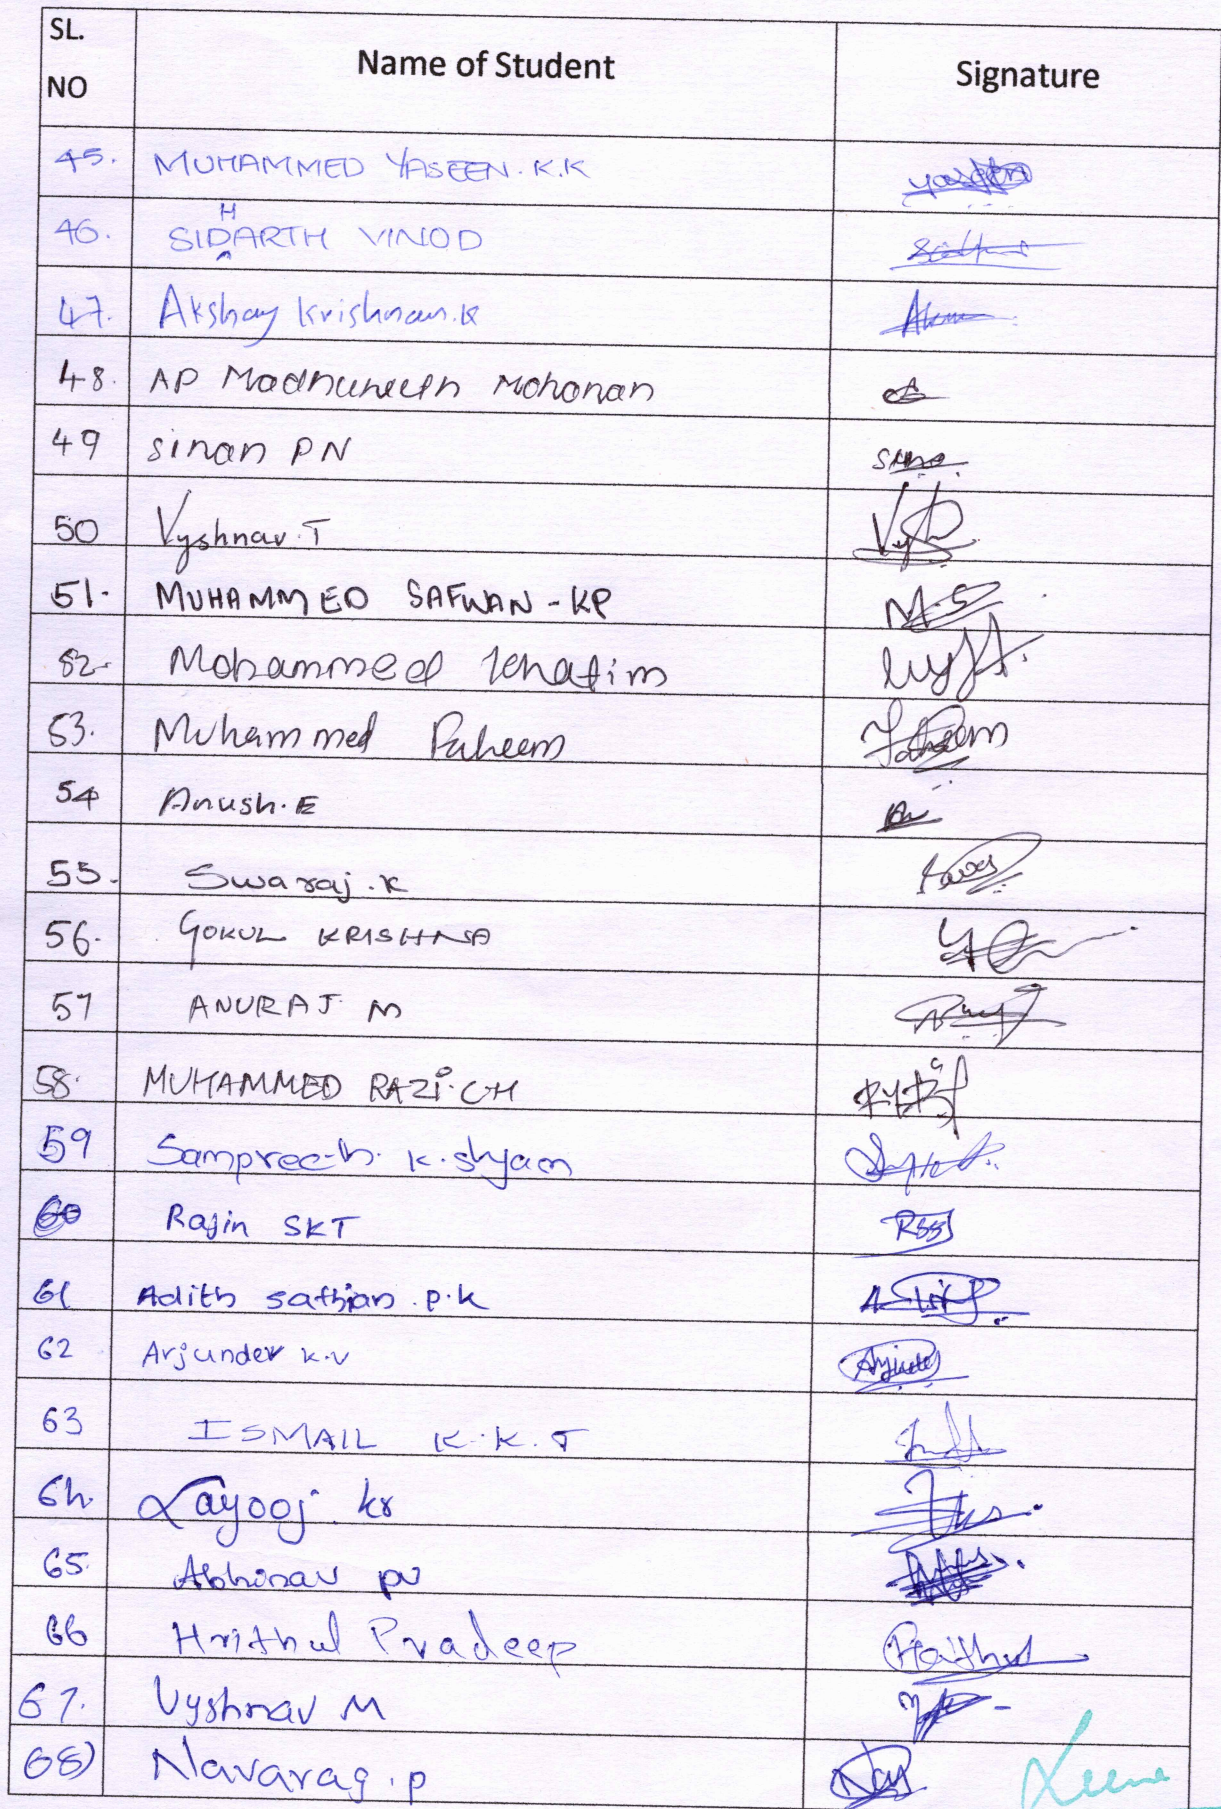 SL. NO Name of Student Signature
45. MUHAMMED YASEEN.K.K yaseen
46. SIDHARTH VINOD
47. Akshay Krishnan.K
48. AP Madhuneeth Mohanan
49 sinan PN
50 Vyshnav.T
51. MUHAMMED SAFWAN-KP M.S
52. Mohammed Khatim
53. Muhammed Faheem Faheem
54 Anush.E
55. Swaraj.K
56. GOKUL KRISHNA
57 ANURAJ M
58. MUHAMMED RAZI.CH
59 Sampreeth. K.shyam
60 Rajin SKT
61 Adith sathian.P.K
62 Arjundev K.V
63 ISMAIL K.K.T
64. Layooj. kr
65. Abhinav pv
66 Hrithul Pradeep
67. Vyshnav M
68) Navarag.p